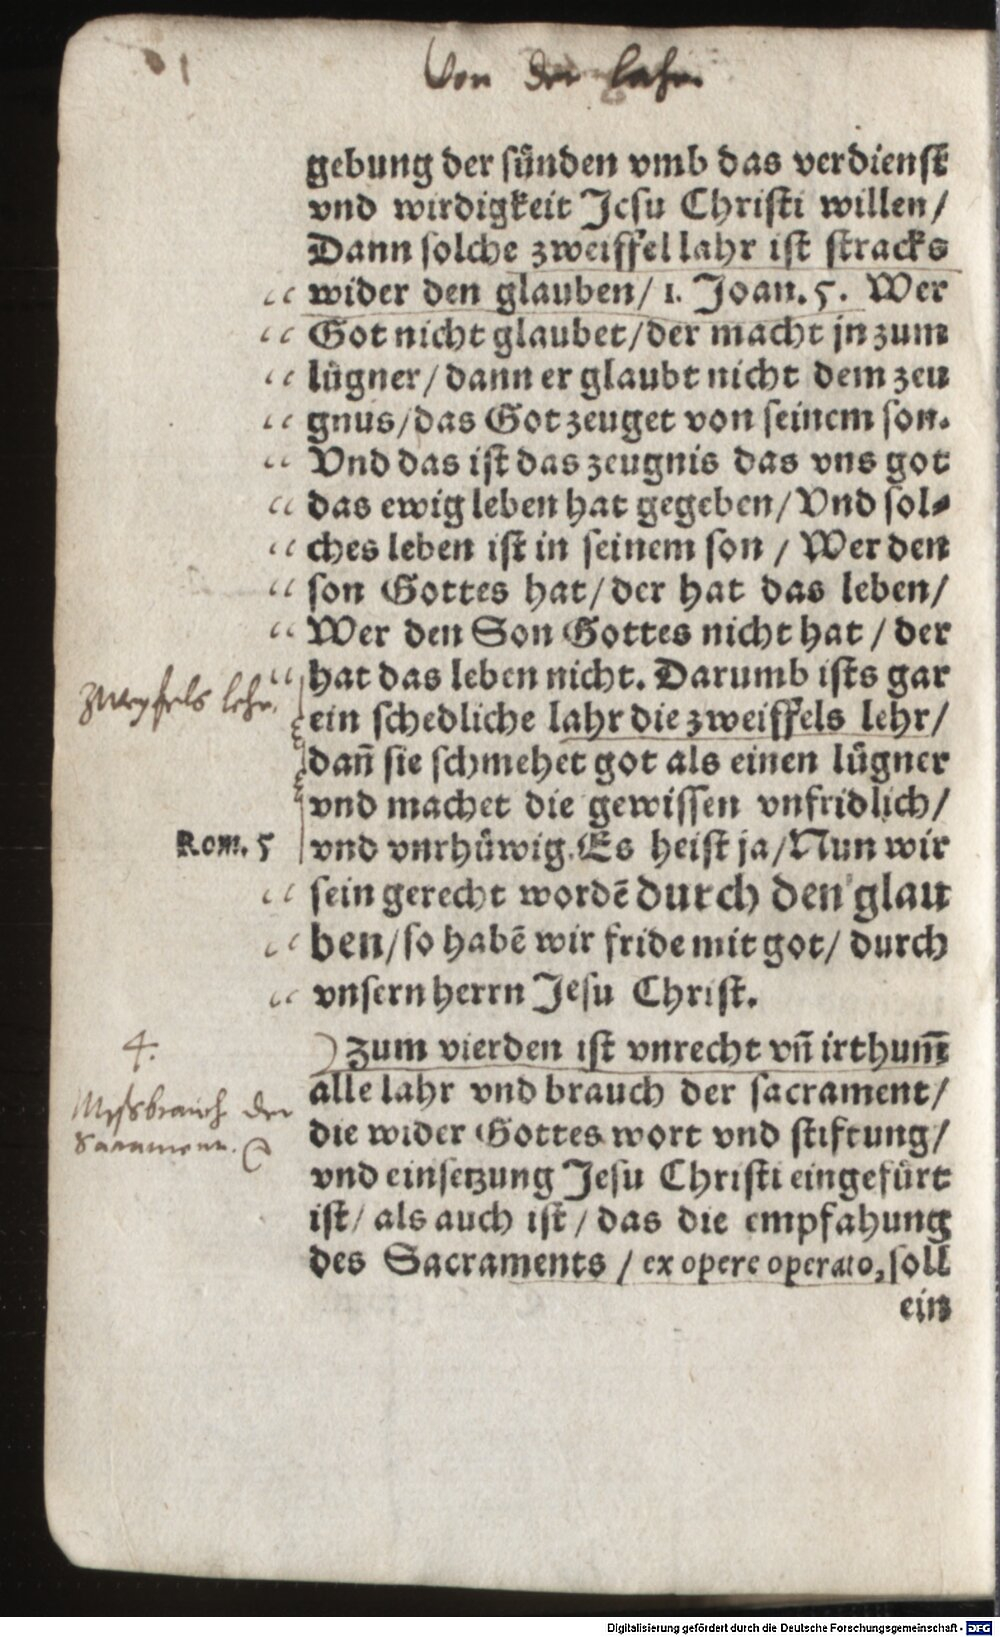 Von der lahr
gebung der sünden vmb das verdienst
vnd wirdigkeit Jesu Christi willen/
Dann solche zweiffel lahr ist stracks
“ wider den glauben/ 1. Joan. 5. Wer
“ Got nicht glaubet/der macht jn zum
“ lügner/ dann er glaubt nicht dem zeu
“ gnus/das Got zeuget von seinem son.
“ Vnd das ist das zeugnis das vns got
“ das ewig leben hat gegeben/ Vnd sol⸗
“ ches leben ist in seinem son / Wer den
“ son Gottes hat/ der hat das leben/
“ Wer den Son Gottes nicht hat / der
“ hat das leben nicht. Darumb ists gar
zweyfels lehr.
ein schedliche lahr die zweiffels lehr/
dañ sie schmehet got als einen lügner
vnd machet die gewissen vnfridlich/
Rom. 5
vnd vnrhüwig. Es heist ja/Nun wir
“ sein gerecht wordē durch den glau
“ ben/so habē wir fride mit got/ durch
“ vnsern herrn Jesu Christ.
4.
) Zum vierden ist vnrecht vñ irthum̃
Myssbrauch der
Sacrament.
alle lahr vnd brauch der sacrament/
die wider Gottes wort vnd stiftung/
vnd einsetzung Jesu Christi eingefürt
ist/ als auch ist / das die empfahung
des Sacraments / ex opere operato, soll
ein
Digitalisierung gefördert durch die Deutsche Forschungsgemeinschaft - DFG